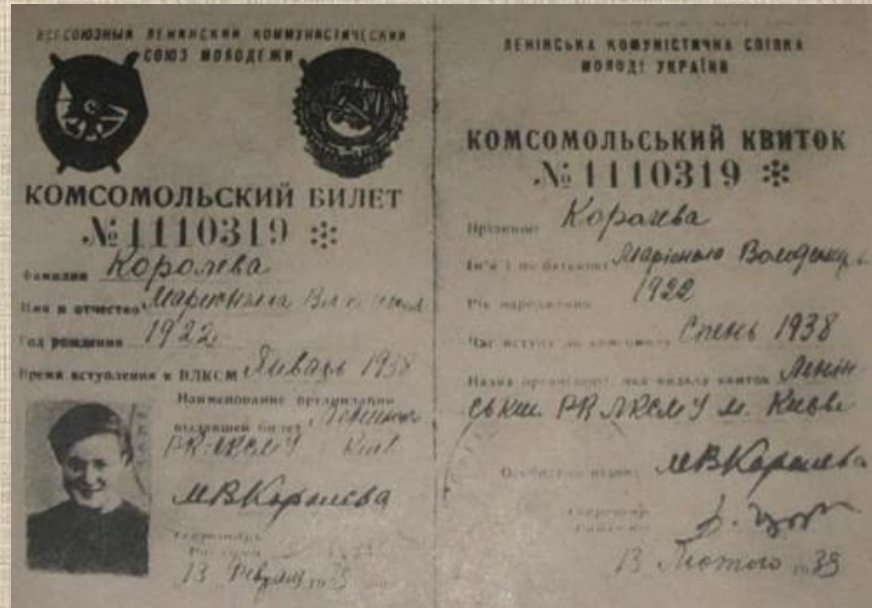 ВСЕСОЮЗНЫЙ ЛЕНИНСКИЙ КОММУНИСТИЧЕСКИЙ
СОЮЗ МОЛОДЕЖИ
КОМСОМОЛЬСКИЙ БИЛЕТ
№ 1110319 *
Фамилия Королева
Имя и отчество
Год рождения 1922
Время вступления в ВЛКСМ Январь 1938
Наименование организации
выдавшей билет
РК ЛКСМУ
МВКоролева
13 Февраля 1939
ЛЕНІНСЬКА КОМУНІСТИЧНА СПІЛКА
МОЛОДІ УКРАЇНИ
КОМСОМОЛЬСЬКИЙ КВИТОК
№ 1110319 *
Королева
Ім'я і по батькові
Рік народження 1922
Час вступу до комсомолу 1938
Назва організації, що видала квиток Ленін
РК ЛКСМУ м.
МВКоролева
13 Лютого 1939